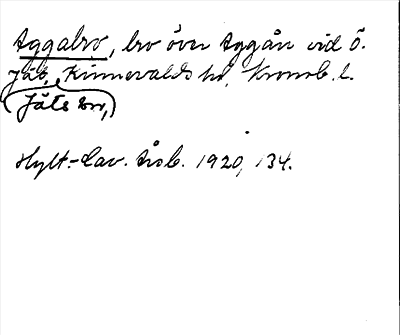 Aggabro, bro över Aggån vid Ö.
Jät, Kinnevalds hd, Kronob. l.
(Jäts sn,)
Hylt.-Cav. Årsb. 1920, 134.